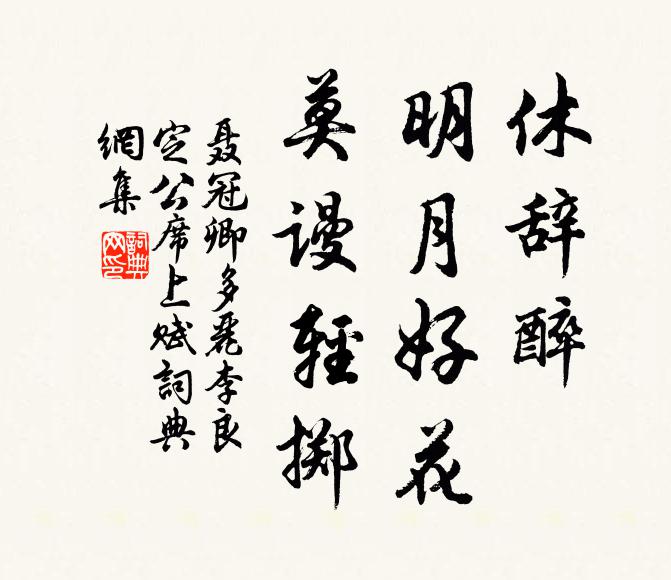 休辞醉
明月好花
莫谩輕掷
聂冠卿多麗李良
定公席上赋詞典
網集
詞典
网印